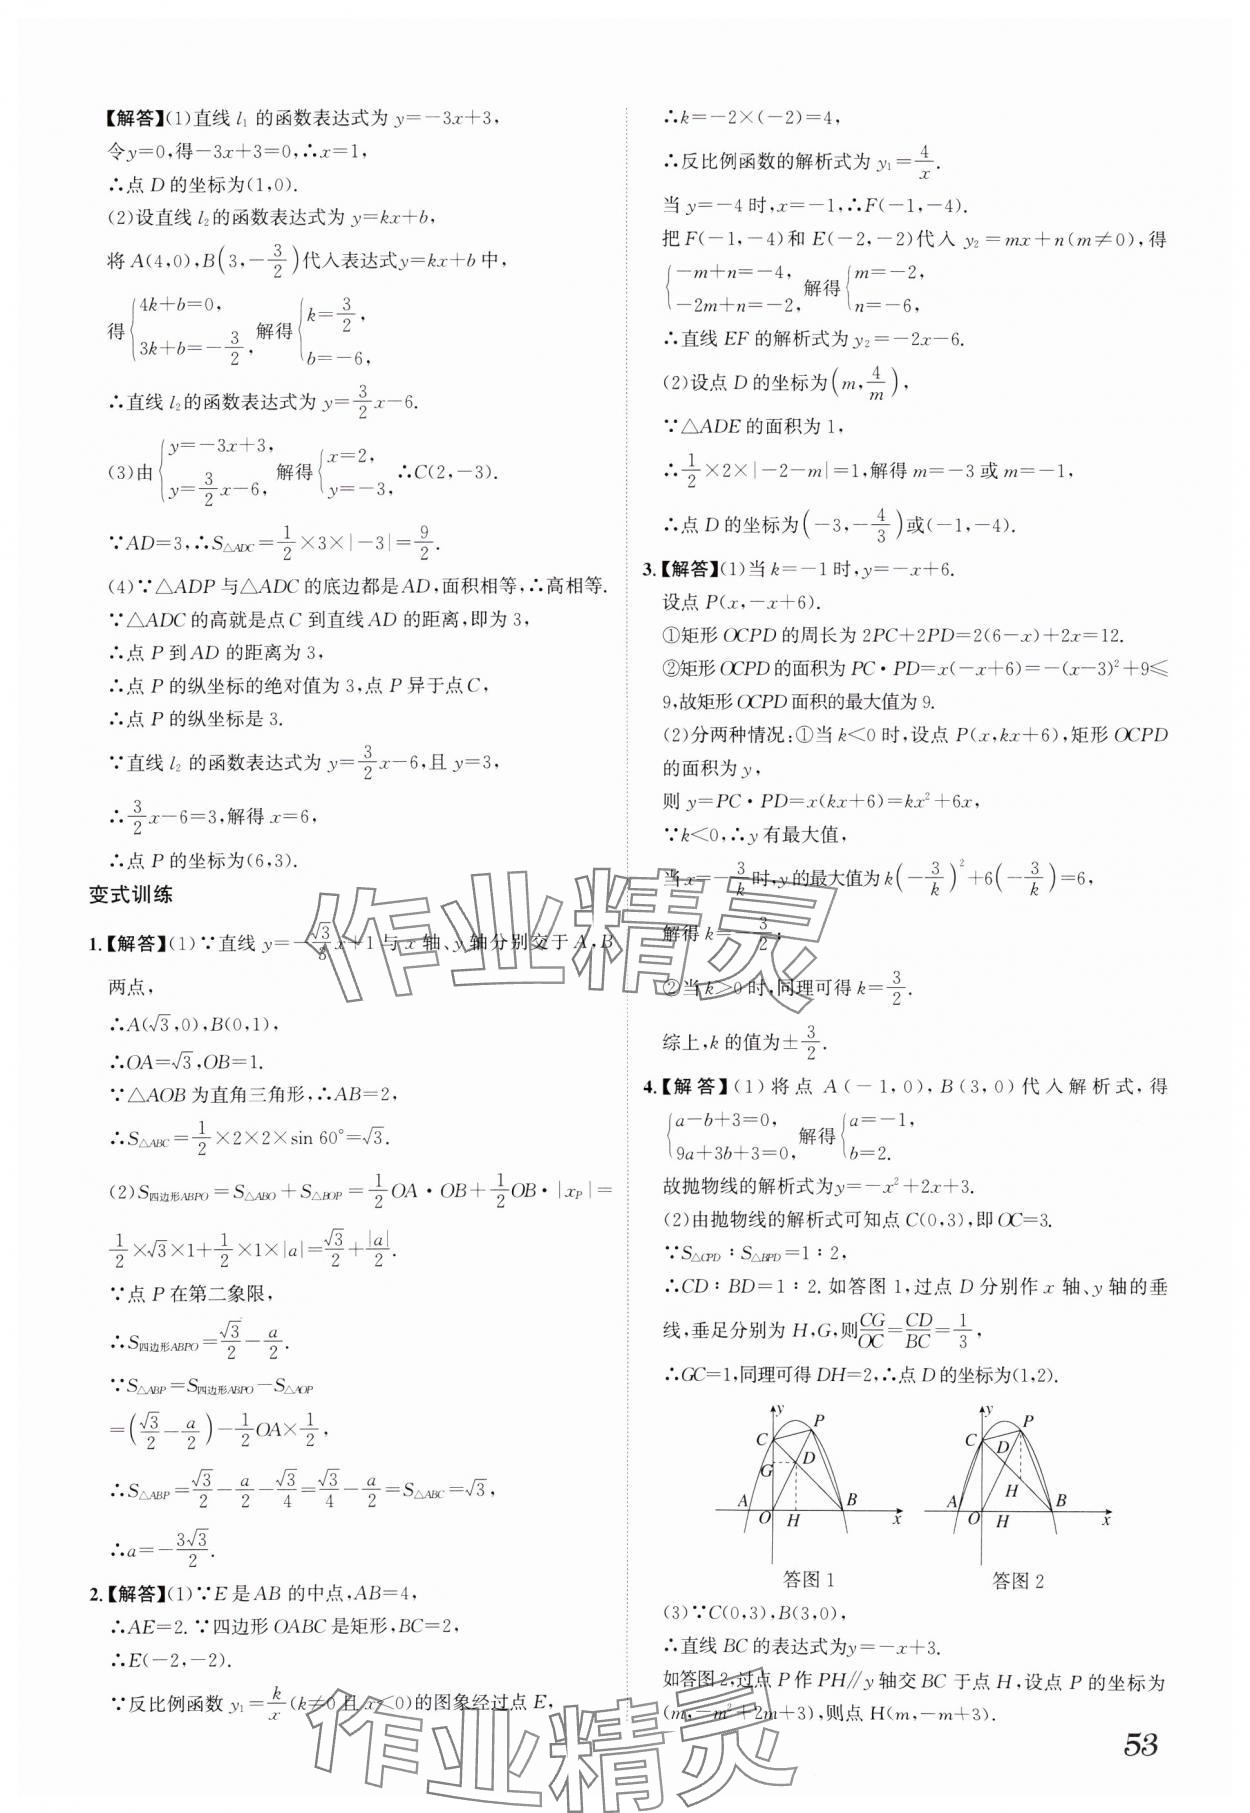 【解答】(1)直线 l₁ 的函数表达式为 y=−3x+3,
令y=0,得−3x+3=0,∴x=1,
∴点 D 的坐标为(1,0).
(2)设直线 l₂的函数表达式为 y=kx+b,
将 A(4,0),B(3,−3/2)代入表达式y=kx+b 中,
得{4k+b=0, 3k+b=−3/2, 解得{k=3/2, b=−6,
∴直线 l₂的函数表达式为 y=3/2x−6.
(3)由{y=−3x+3, y=3/2x−6, 解得{x=2, y=−3, ∴C(2,−3).
∵AD=3,∴S△ADC=1/2×3×|−3|=9/2.
(4)∵△ADP 与△ADC 的底边都是AD,面积相等,∴高相等.
∵△ADC 的高就是点C 到直线AD 的距离,即为 3,
∴点 P 到AD 的距离为 3,
∴点 P 的纵坐标的绝对值为 3,点 P 异于点C,
∴点 P 的纵坐标是 3.
∵直线 l₂ 的函数表达式为 y=3/2x−6,且 y=3,
∴3/2x−6=3,解得 x=6,
∴点 P 的坐标为(6,3).
变式训练
1.【解答】(1)∵直线 y=−√3/3x+1 与 x 轴、y 轴分别交于 A,B
两点,
∴A(√3,0),B(0,1),
∴OA=√3,OB=1.
∵△AOB 为直角三角形,∴AB=2,
∴S△ABC=1/2×2×2×sin 60°=√3.
(2)S四边形ABPO=S△ABO+S△BOP=1/2OA·OB+1/2OB·|xP|=
1/2×√3×1+1/2×1×|a|=√3/2+|a|/2.
∵点 P 在第二象限,
∴S四边形ABPO=√3/2−a/2.
∵S△ABP=S四边形ABPO−S△AOP
=(√3/2−a/2)−1/2OA×1/2,
∴S△ABP=√3/2−a/2−√3/4=√3/4−a/2=S△ABC=√3,
∴a=−3√3/2.
2.【解答】(1)∵E 是 AB 的中点,AB=4,
∴AE=2.∵四边形 OABC 是矩形,BC=2,
∴E(−2,−2).
∵反比例函数 y₁=k/x(k≠0且x<0)的图象经过点 E,
∴k=−2×(−2)=4,
∴反比例函数的解析式为 y₁=4/x.
当 y=−4 时,x=−1,∴F(−1,−4).
把 F(−1,−4)和 E(−2,−2)代入 y₂=mx+n(m≠0),得
{−m+n=−4, −2m+n=−2, 解得{m=−2, n=−6,
∴直线 EF 的解析式为 y₂=−2x−6.
(2)设点 D 的坐标为(m,4/m),
∵△ADE 的面积为 1,
∴1/2×2×|−2−m|=1,解得 m=−3 或 m=−1,
∴点 D 的坐标为(−3,−4/3)或(−1,−4).
3.【解答】(1)当 k=−1 时,y=−x+6.
设点 P(x,−x+6).
①矩形 OCPD 的周长为 2PC+2PD=2(6−x)+2x=12.
②矩形OCPD的面积为 PC·PD=x(−x+6)=−(x−3)²+9≤
9,故矩形OCPD 面积的最大值为 9.
(2)分两种情况:①当 k<0 时,设点 P(x,kx+6),矩形 OCPD
的面积为 y,
则 y=PC·PD=x(kx+6)=kx²+6x,
∵k<0,∴y 有最大值,
当 x=−3/k时,y的最大值为 k(−3/k)²+6(−3/k)=6,
解得 k=−3/2;
②当 k>0 时,同理可得 k=3/2.
综上,k 的值为±3/2.
4.【解答】(1)将点 A(−1,0),B(3,0)代入解析式,得
{a−b+3=0, 9a+3b+3=0, 解得{a=−1, b=2.
故抛物线的解析式为y=−x²+2x+3.
(2)由抛物线的解析式可知点 C(0,3),即 OC=3.
∵S△CPD∶S△BPD=1∶2,
∴CD∶BD=1∶2.如答图 1,过点 D 分别作 x 轴、y 轴的垂
线,垂足分别为 H,G,则CG/OC=CD/BC=1/3,
∴GC=1,同理可得 DH=2,∴点 D 的坐标为(1,2).
y P C G D A O H B x
y P C D H A O H B x
答图 1
答图 2
(3)∵C(0,3),B(3,0),
∴直线 BC 的表达式为y=−x+3.
如答图 2,过点 P 作 PH∥y 轴交 BC 于点 H,设点 P 的坐标为
(m,−m²+2m+3),则点 H(m,−m+3).
53
作业精灵
作业精灵